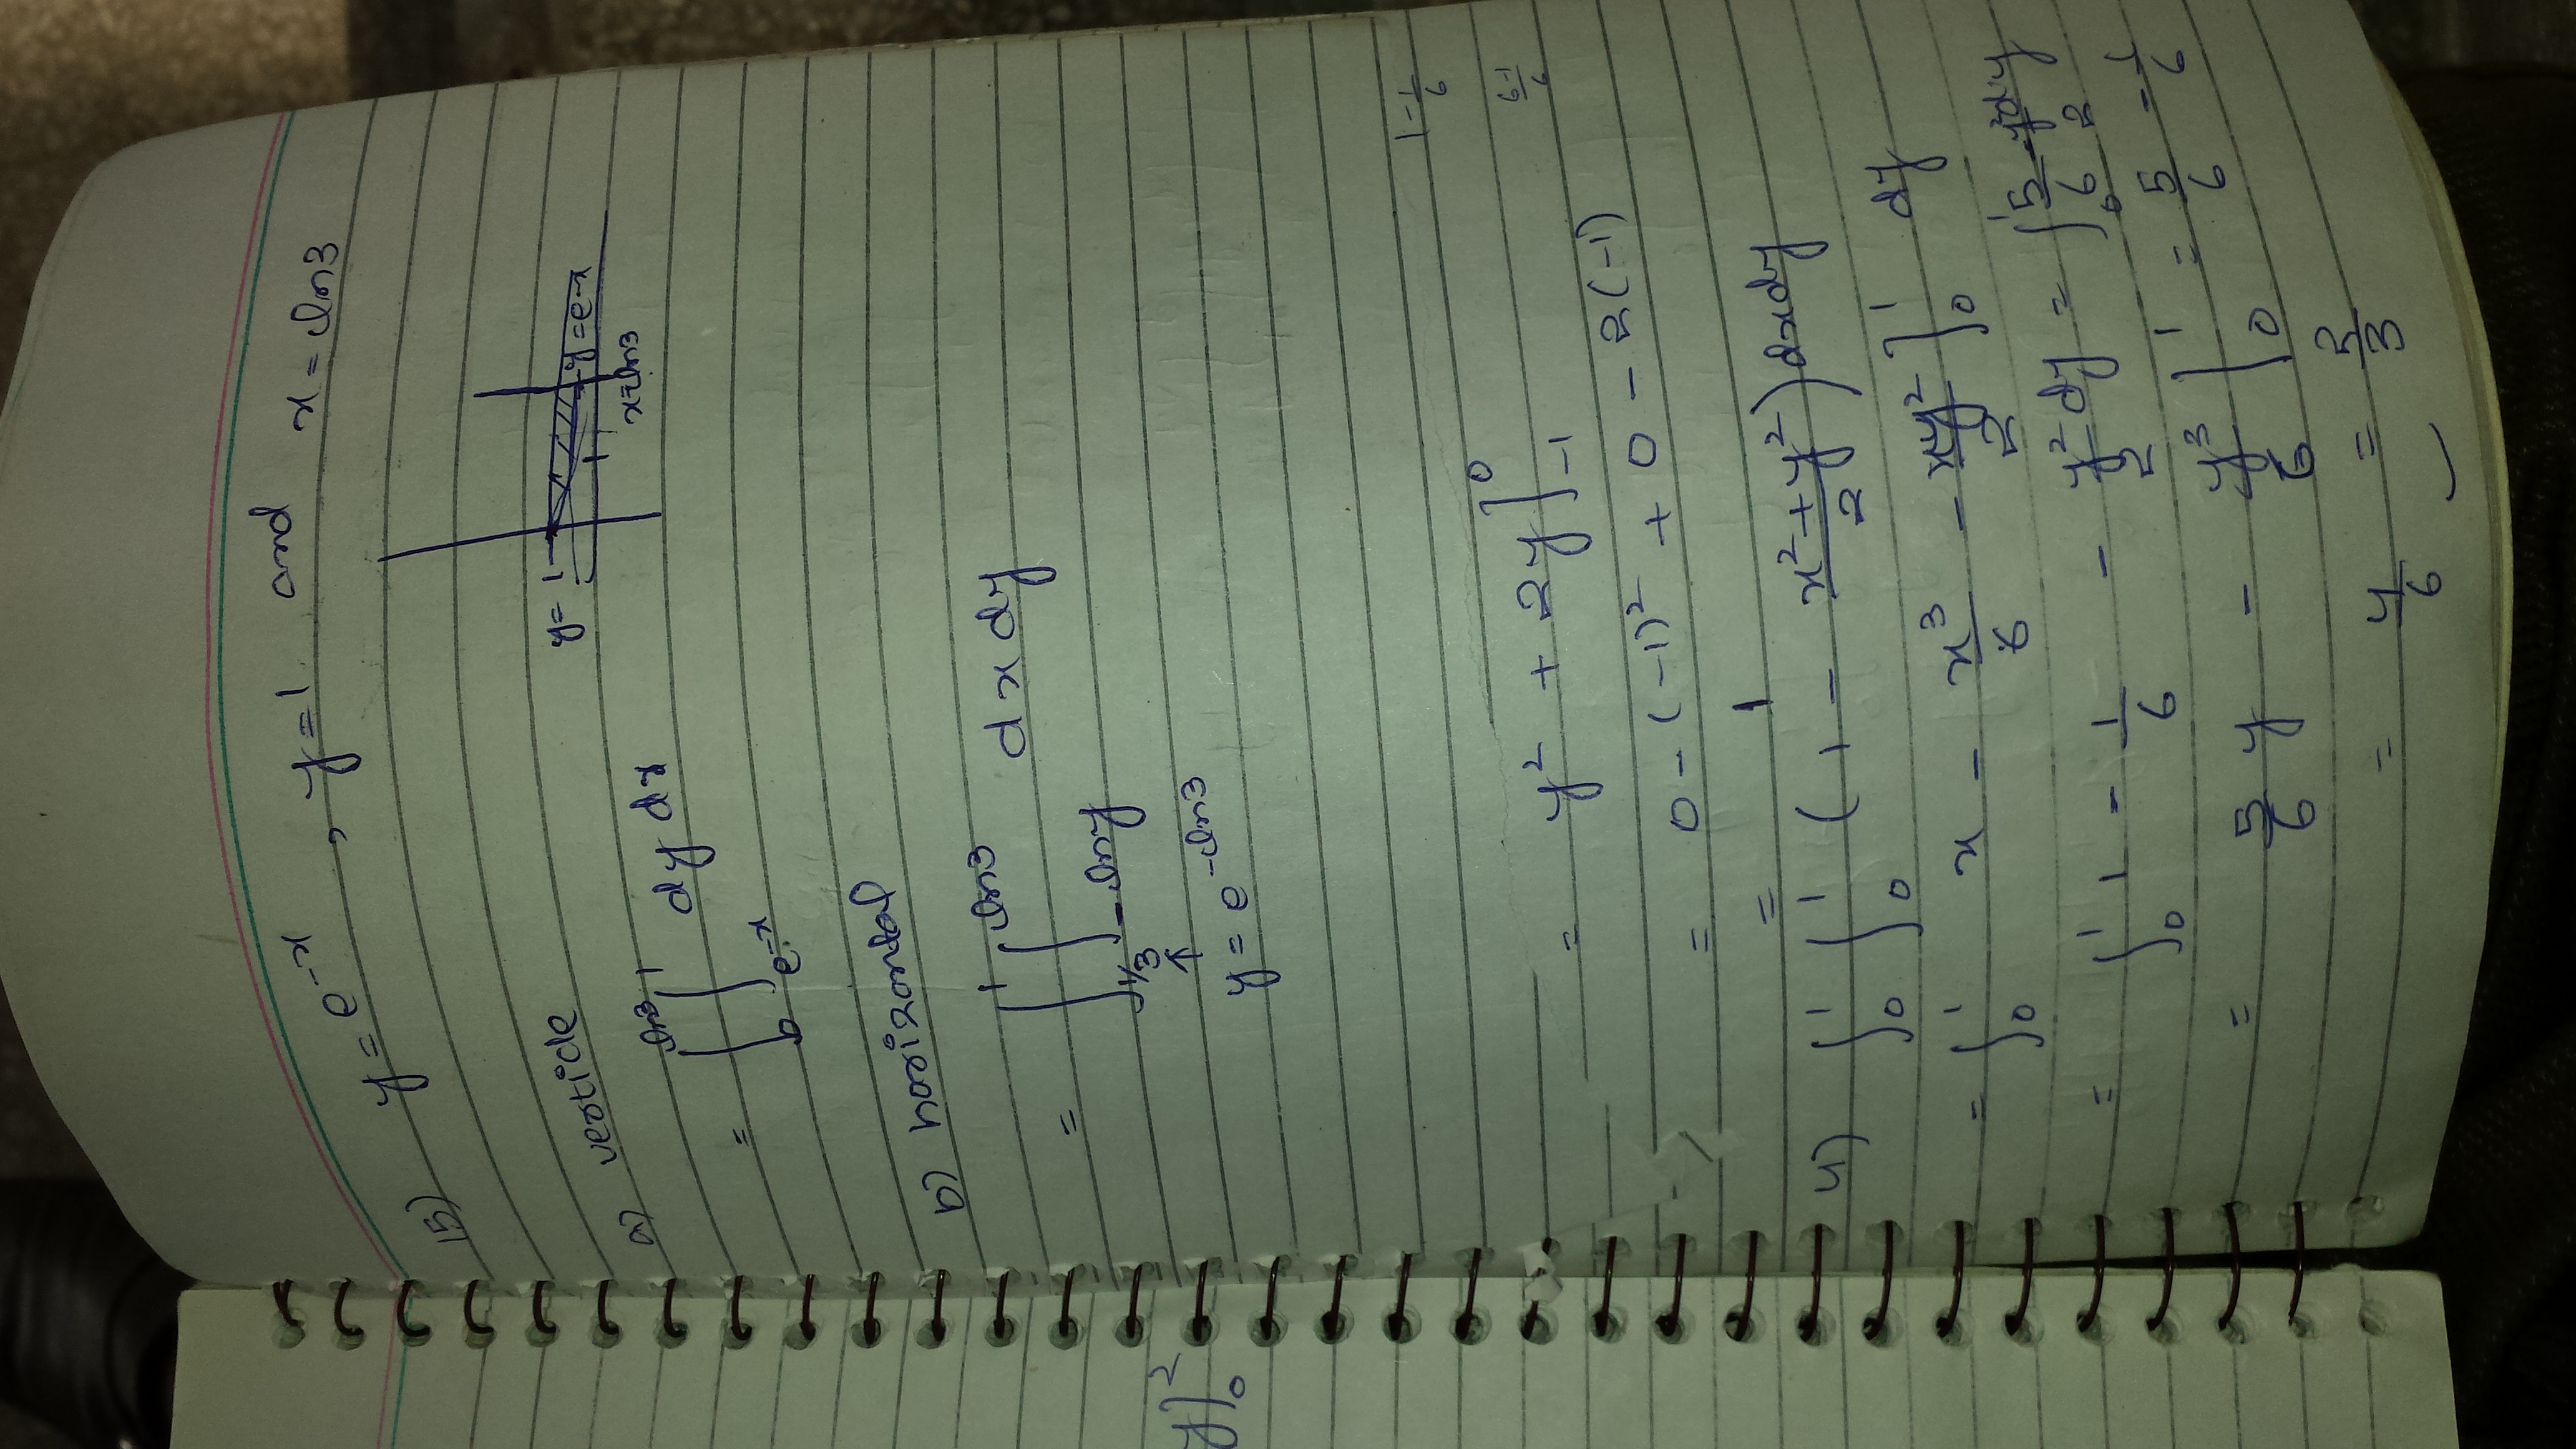 15) y = e^-x , y = 1 and x = ln3
y = 1
y = e^-x
x = ln3
a) verticle
= ∫_0^ln3 ∫_e^-x^1 dy dx
b) horizontal
= ∫_1/3^1 ∫_-ln y^ln3 dx dy
↑
y = e^-ln3
y]_0^2
1 - 1/6
= y² + 2y]_-1^0
6-1/6
= 0 - (-1)² + 0 - 2(-1)
= 1
4) ∫_0^1 ∫_0^1 (1 - x² + y²/2) dx dy
= ∫_0^1 x - x³/6 - xy²/2]_0^1 dy
= ∫_0^1 1 - 1/6 - y²/2 dy = ∫_0^1 5/6 - y²/2 dy
= 5/6 y - y³/6 |_0^1 = 5/6 - 1/6
= 4/6 = 2/3